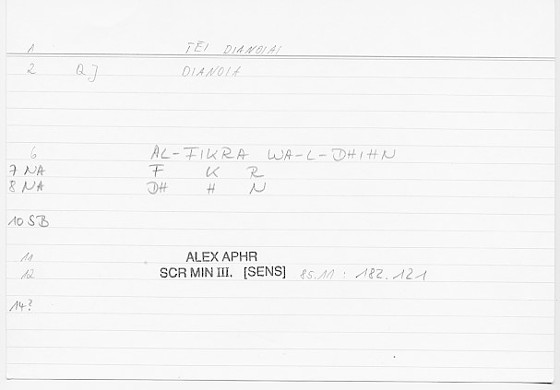 1 TEI DIANOIAI
2 QJ DIANOIA
6 AL-FIKRA WA-L-DHIHN
7 NA F K R
8 NA DH H N
10 SB
11 ALEX APHR
12 SCR MIN III. [SENS] 85.11 : 182.121
14?